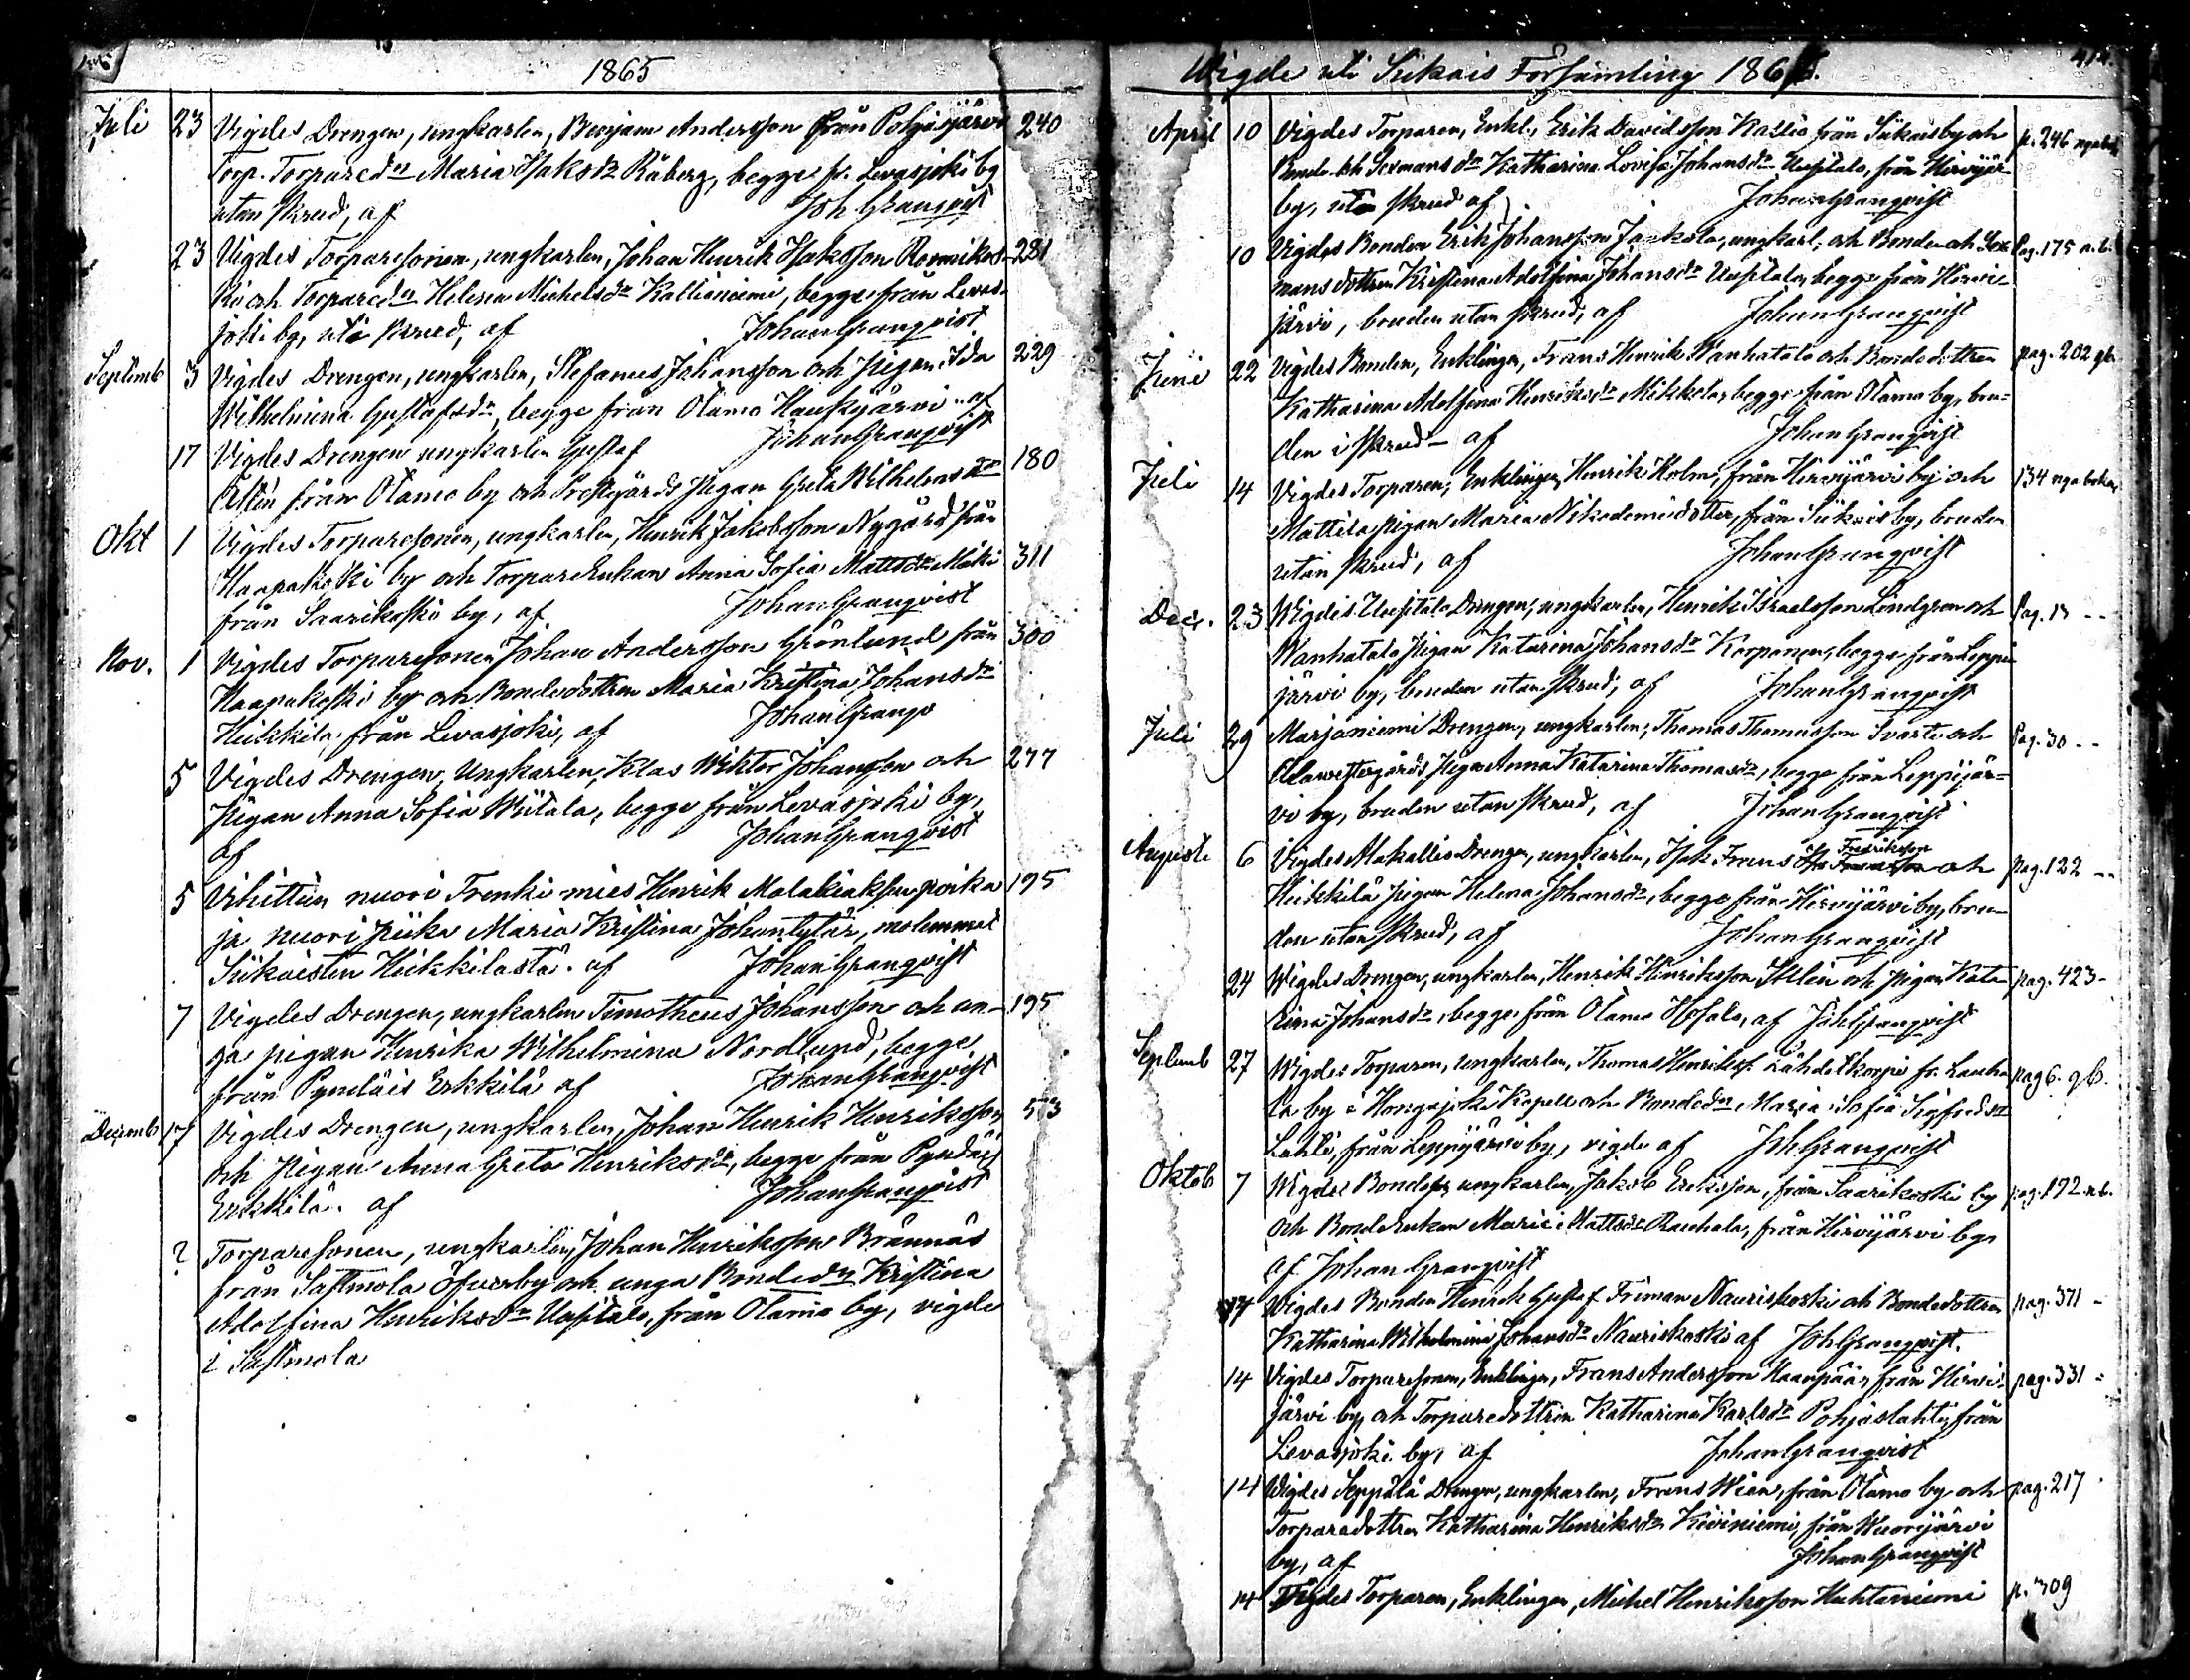 1865
Juli 23 Vigdes Drengen, ungkarlen, Benjam Andersson från Pohjasjärvi 240
Torp. Torparedn Maria Isaksdr Råberg, begge fr. Levasjoki by
utan skrud, af Joh Granqvist
23 Vigdes Torparesonen, ungkarlen, Johan Henrik Isaksson 281
och Torparedn Helena Michelsdr Kallioniemi, begge från Levas-
joki by, uti skrud, af Johan Granqvist
Septemb 3 Vigdes Drengen, ungkarlen, Stefanus Johansson och Pigan Ida 229
Wilhelmina Gustafsdr, begge från Otamo Haukijärvi af
Johan Granqvist
17 Vigdes Drengen ungkarlen Gustaf 180
från Otamo by och Prestgårds Pigan Greta Wilhelmsdr
Okt 1 Vigdes Torparesonen, ungkarlen, Henrik Jakobsson Nygård från
Haapakoski by och Torpareenkan Anna Sofia Mattsdr Mäki 311
från Saarikoski by, af Johan Granqvist
Nov. 1 Vigdes Torparesonen Johan Andersson Grönlund från 300
Haapakoski by och Bondedottren Maria Kristina Johansdr
Heikkilä, från Levasjoki, af Johan Granqv
5 Vigdes Drengen, Ungkarlen, Klas Wiktor Johansson och 277
Pigan Anna Sofia Wiitala, begge från Levasjoki by,
af Johan Granqvist
5 Vihittiin nuori Trenki mies Henrik Malakiaksen poika 195
ja nuori piika Maria Kristina Johantytär, molemmat
Siikaisten Heikkilästä. af Johan Granqvist
7 Vigdes Drengen, ungkarlen Timotheus Johansson och un- 195
ga pigan Henrika Wilhelmina Nordlund, begge
från Pyndäis Erkkilä af Johan Granqvist
Decemb 17 Vigdes Drengen, ungkarlen, Johan Henrik Henriksson 53
och Pigan Anna Greta Henriksdr, begge från Pyndäis
Erkkilä. af Johan Granqvist
? Torparesonen, ungkarlen, Johan Henriksson Brännäs
från Sastmola Öfverby och unga Bondedn Kristina
Adolfina Henriksdr Uusitalo, från Otamo by, vigde
i Sastmola
Wigde uti Siikais Församling 1866.
April 10 Vigdes Torparen, Enkl., Erik Davidsson Kallio från Siikais by och p. 246 nya bok
Bonde och Sexmansdn Katharina Lovisa Johansdr Uusitalo, från Hirvijär
by, utan skrud af Johan Granqvist
10 Vigdes Bonden Erik Johansson Jaakola, ungkarl, och Bonde och Sex Pag. 175 n.b.
mansdottren Kristina Adolfina Johansdr Uusitalo, begge från Hirvi-
järvi, bruden utan skrud, af Johan Granqvist
Juni 22 Vigdes Bonden, Enklingen, Frans Henrik Wanhatalo och Bondedottren pag. 202 gb
Katharina Adolfina Henriksdr Mikkola, begge från Otamo by, bru-
den i skrud af Johan Granqvist
Juli 14 Vigdes Torparen, Enklingen, Henrik Holm, från Hirvijärvi by och 134 nya boken
Mattila pigan Maria Nikodemidotter, från Siikais by, bruden
utan skrud, af Johan Granqvist
Dec. 23 Wigdes Uusitalo Drengen, ungkarlen, Henrik Israelsson Lindgren och Pag. 13 --
Wanhatalo Pigan Katarina Johansdr Korpanen, begge från Leppi
järvi by, bruden utan skrud, af Johan Granqvist
Juli 29 Marjaniemi Drengen, ungkarlen, Thomas Thomasson Svart och Pag. 30 --
Pigan Anna Katarina Thomasdr, begge från Leppijär-
vi by, bruden utan skrud, af Johan Granqvist
Fredriksson
Augusti 6 Vigdes Alakallio Drengen, ungkarlen, Isak Frans och pag. 122 --
Heikkilä pigan Helena Johansdr, begge från Hirvijärvi by, bru-
den utan skrud, af Johan Granqvist
24 Wigdes Drengen, ungkarlen, Henrik Henriksson och pigan Kata pag. 423 -
rina Johansdr, begge från Otamo, af Joh Granqvist
Septemb 27 Wigdes Torparen, ungkarlen, Thomas Henrikss. Lähdekorpi fr. Lauha pag 6. gb.
la by i Hongojoki Kapell och Bondedn Maria Sofia Sigfredsdr
Lahti, från Leppijärvi by, vigde af Joh Granqvist
Oktob 7 Wigdes Bondes. ungkarlen, Jakob Eriksson, från Saarikoski by pag. 192 n.b.
och Bondeenkan Maria Mattsdr Rauhala, från Hirvijärvi by,
af Johan Granqvist
14 Wigdes Bonden Henrik Gustaf Friman Nauriskoski och Bondedottren pag. 371 -
Katharina Wilhelmina Johansdr Nauriskoski af Joh Granqvist.
14 Vigdes Torparesonen, Enklingen, Frans Andersson Haanpää, från Hirvi- pag. 331 -
järvi by, och Torparedottren Katharina Karlsdr Pohjaslahti, från
Levasjoki by, af Johan Granqvist
14 Wigdes Seppälä Drengen, ungkarlen, Frans Wien, från Otamo by och pag. 217
Torparedottren Katharina Henriksdr Kiviniemi, från Wuorijärvi
by, af Johan Granqvist
14 Vigdes Torparen, Enklingen, Michel Henriksson Huhtaniemi p. 309